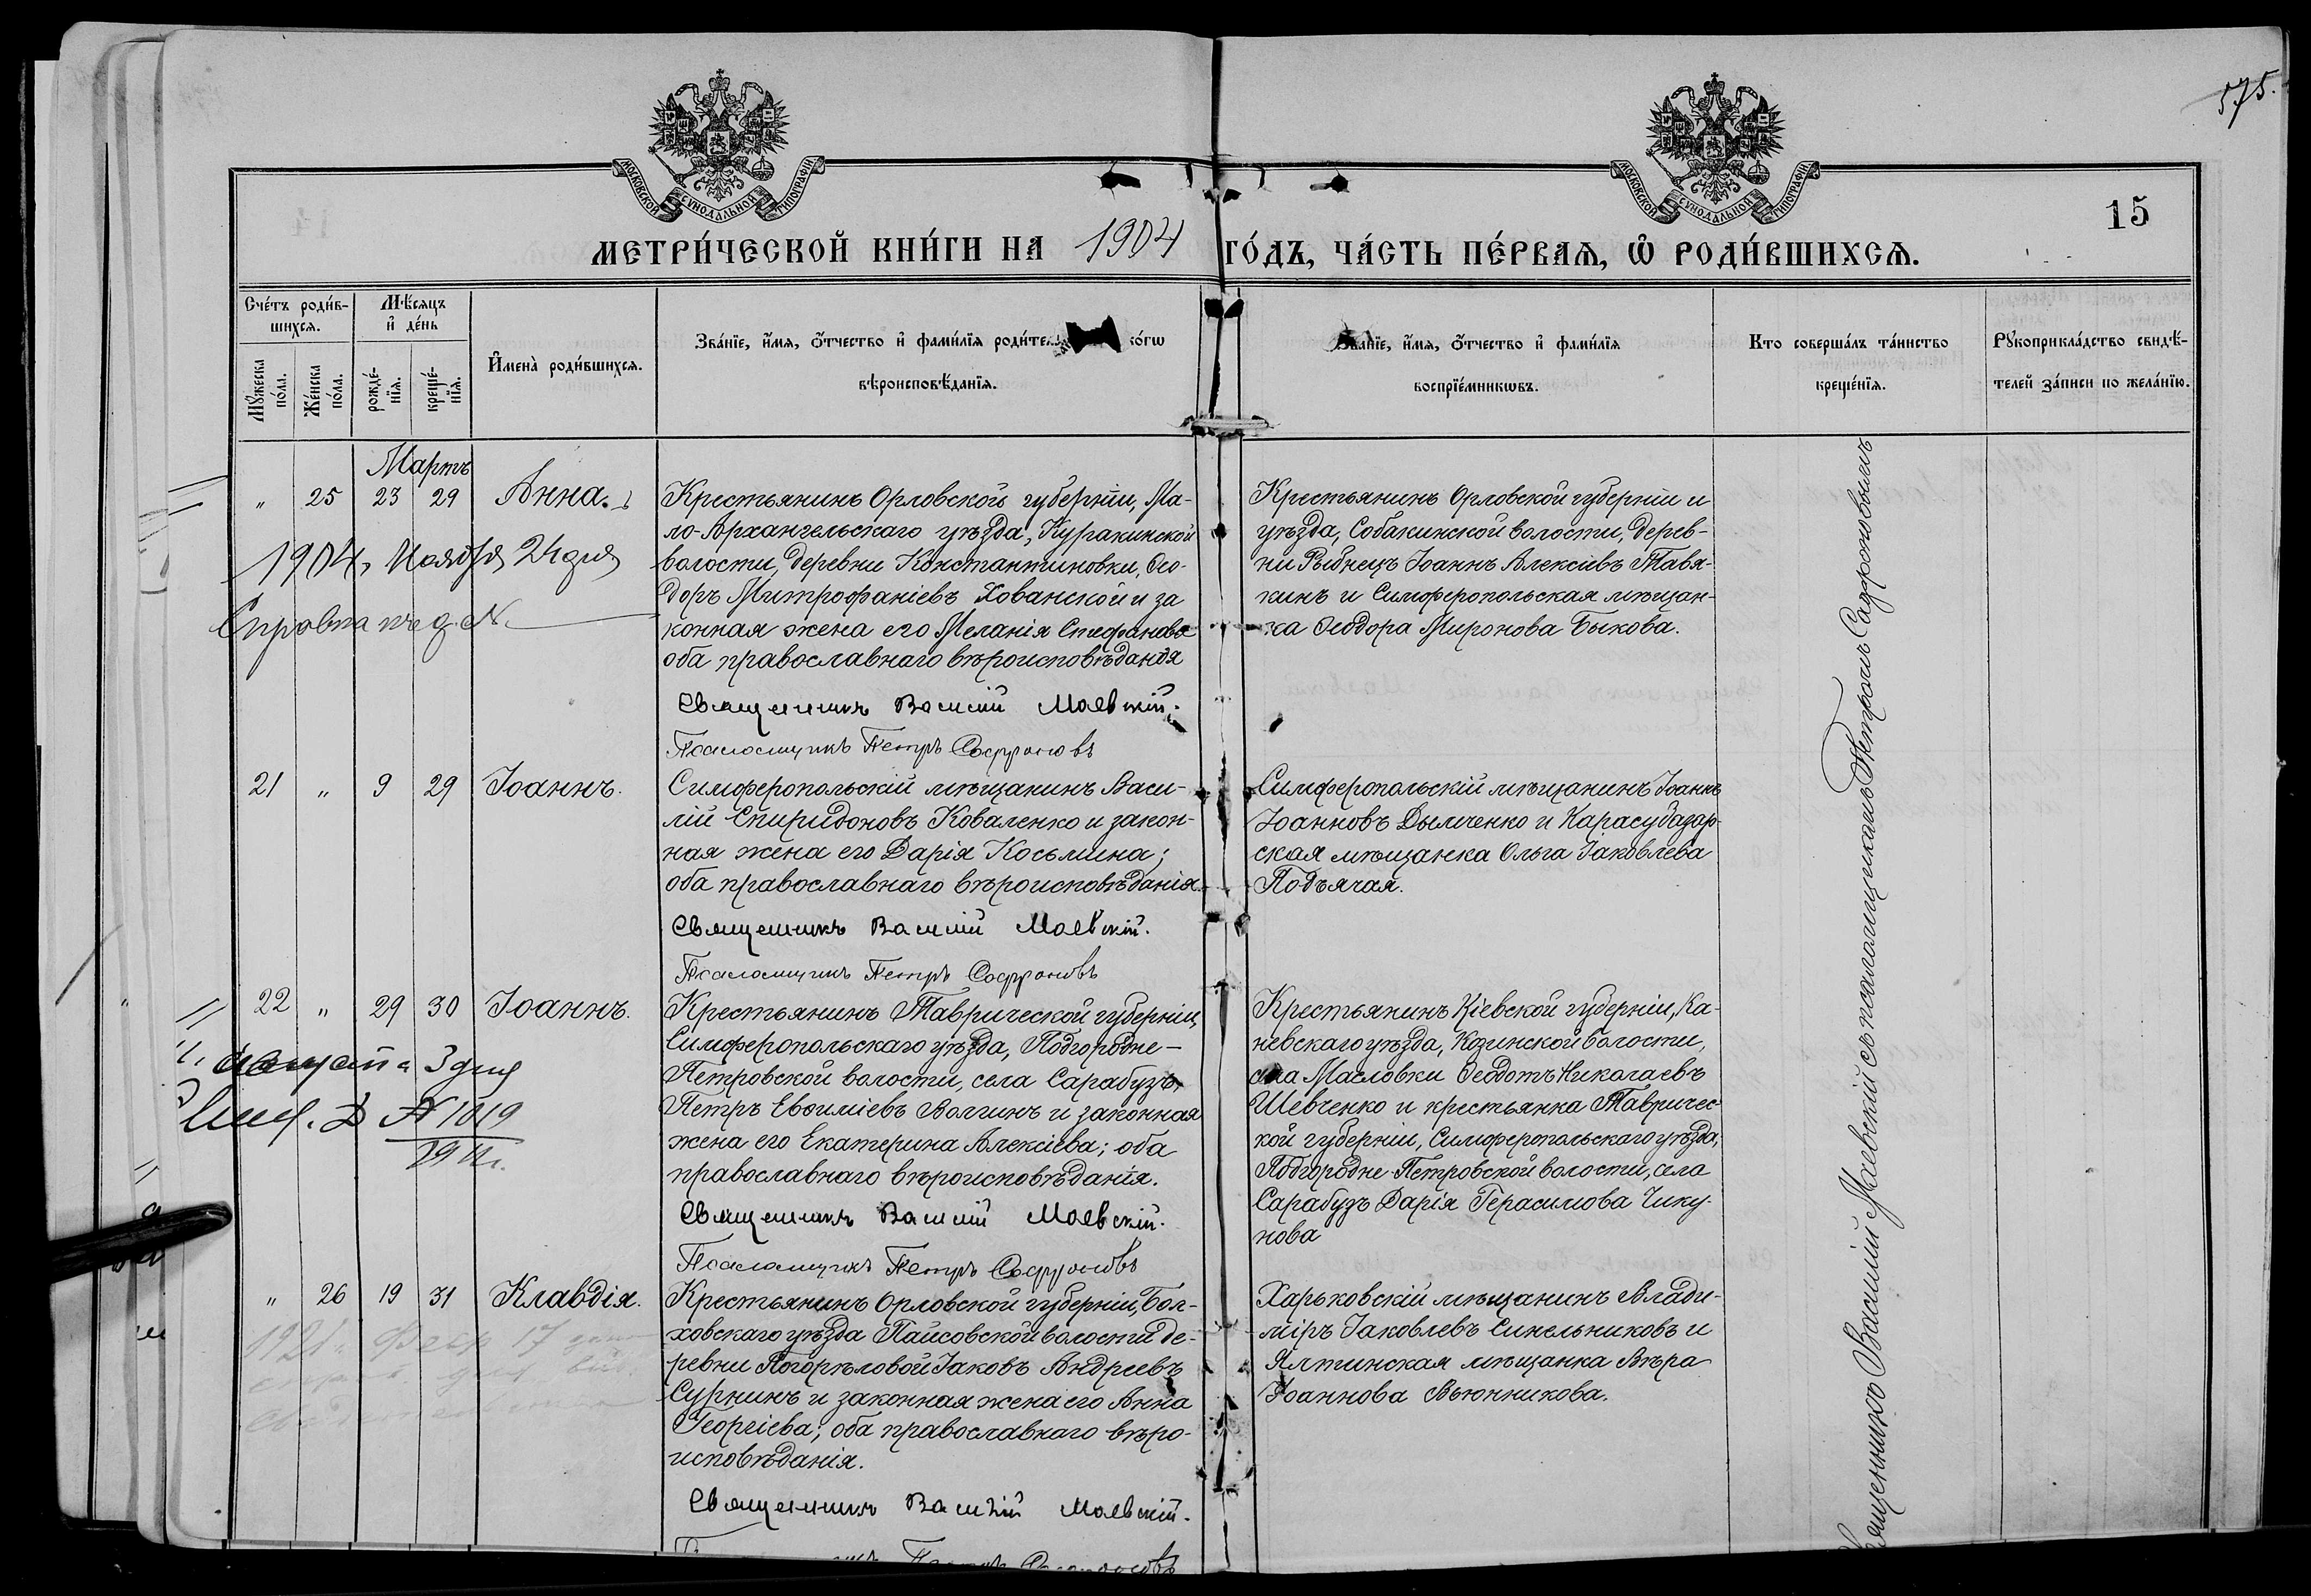 575.
15
МОСКОВСКОЙ СѴНОДАЛЬНОЙ ТИПОГРАФІИ
МОСКОВСКОЙ СѴНОДАЛЬНОЙ ТИПОГРАФІИ
МЕТРИ́ЧЕСКОЙ КНИ́ГИ НА 1904 ГО́ДЪ, ЧА́СТЬ ПЕ́РВАѦ, Ѡ҆ РОДИ́ВШИХСѦ.
Сче́тъ роди́в-
шихсѧ.
Мꙋ́жеска по́ла.
Же́нска по́ла.
Мѣ́сяцъ
и҆ де́нь
рожде́-
нїѧ.
креще́-
нїѧ.
И҆мена̀ роди́вшихсѧ.
Зва́нїе, и҆́мѧ, ѻ҆́тчество и҆ фами́лїѧ роди́тел ко́гѡ
вѣроисповѣ́данїѧ.
Зва́нїе, и҆́мѧ, ѻ҆́тчество и҆ фами́лїѧ
воспрїе́мникѡвъ.
Кто соверша́лъ та́инство
креще́нїѧ.
Рꙋкоприкла́дство свидѣ́-
телей за́писи по жела́нїю.
Мартъ
" 25 23 29 Анна.
Крестьянинъ Орловской губерніи, Ма-
ло-Архангельскаго уѣзда, Куракинской
волости, деревни Константиновки, Ѳео-
доръ Митрофаніевъ Хованской и за
конная жена его Меланія Стефанова
оба православнаго вѣроисповѣданія
Священникъ Василій Маевскій.
Псаломщикъ Петръ Софроновъ
Крестьянинъ Орловской губерніи и
уѣзда, Собакинской волости, дерев-
ни Рыбнецъ Іоаннъ Алексіевъ Тавя-
кинъ и Симферопольская мѣщан-
ка Ѳеодора Миронова Быкова.
1904, Ноября 24 дня
Справка
21 " 9 29 Іоаннъ.
Симферопольскій мѣщанинъ Васи-
лій Спиридоновъ Коваленко и закон-
ная жена его Дарія Косьмина;
оба православнаго вѣроисповѣданія.
Священникъ Василій Маевскій.
Псаломщикъ Петръ Софроновъ
Симферопольскій мѣщанинъ Іоаннъ
Іоанновъ Дымченко и Карасубазар-
ская мѣщанка Ольга Іаковлева
Подъячая.
22 " 29 30 Іоаннъ.
Крестьянинъ Таврической губерніи,
Симферопольскаго уѣзда, Подгородне-
Петровской волости, села Сарабузъ,
Петръ Евѳиміевъ Волгинъ и законная
жена его Екатерина Алексіева; оба
православнаго вѣроисповѣданія.
Священникъ Василій Маевскій.
Псаломщикъ Петръ Софроновъ
Крестьянинъ Кіевской губерніи, Ка-
невскаго уѣзда, Козинской волости,
села Масловки Ѳеодотъ Николаевъ
Шевченко и крестьянка Тавричес-
кой губерніи, Симферопольскаго уѣзда,
Подгородне-Петровской волости, села
Сарабузъ Дарія Герасимова Чику-
нова
Августа 3 дня
№ 1019
" 26 19 31 Клавдія.
Крестьянинъ Орловской губерніи, Бол-
ховскаго уѣзда Паисовской волости де-
ревни Погорѣловой Іаковъ Андреевъ
Сурнинъ и законная жена его Анна
Георгіева; оба православнаго вѣро-
исповѣданія.
Священникъ Василій Маевскій.
Петръ Софроновъ
Харьковскій мѣщанинъ Влади-
міръ Іаковлевъ Синельниковъ и
Ялтинская мѣщанка Вѣра
Іоаннова Вьюнникова.
17
Священникъ Василій Маевскій съ псаломщикомъ Петромъ Софроновымъ